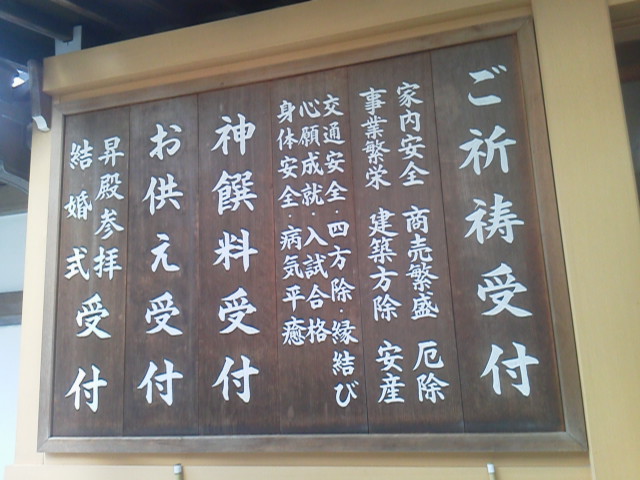 ご祈祷受付
家内安全 商売繁盛 厄除
事業繁栄 建築方除 安産
交通安全・四方除・縁結び
心願成就・入試合格
身体安全・病気平癒
神饌料受付
お供え受付
昇殿参拝
結婚式受付